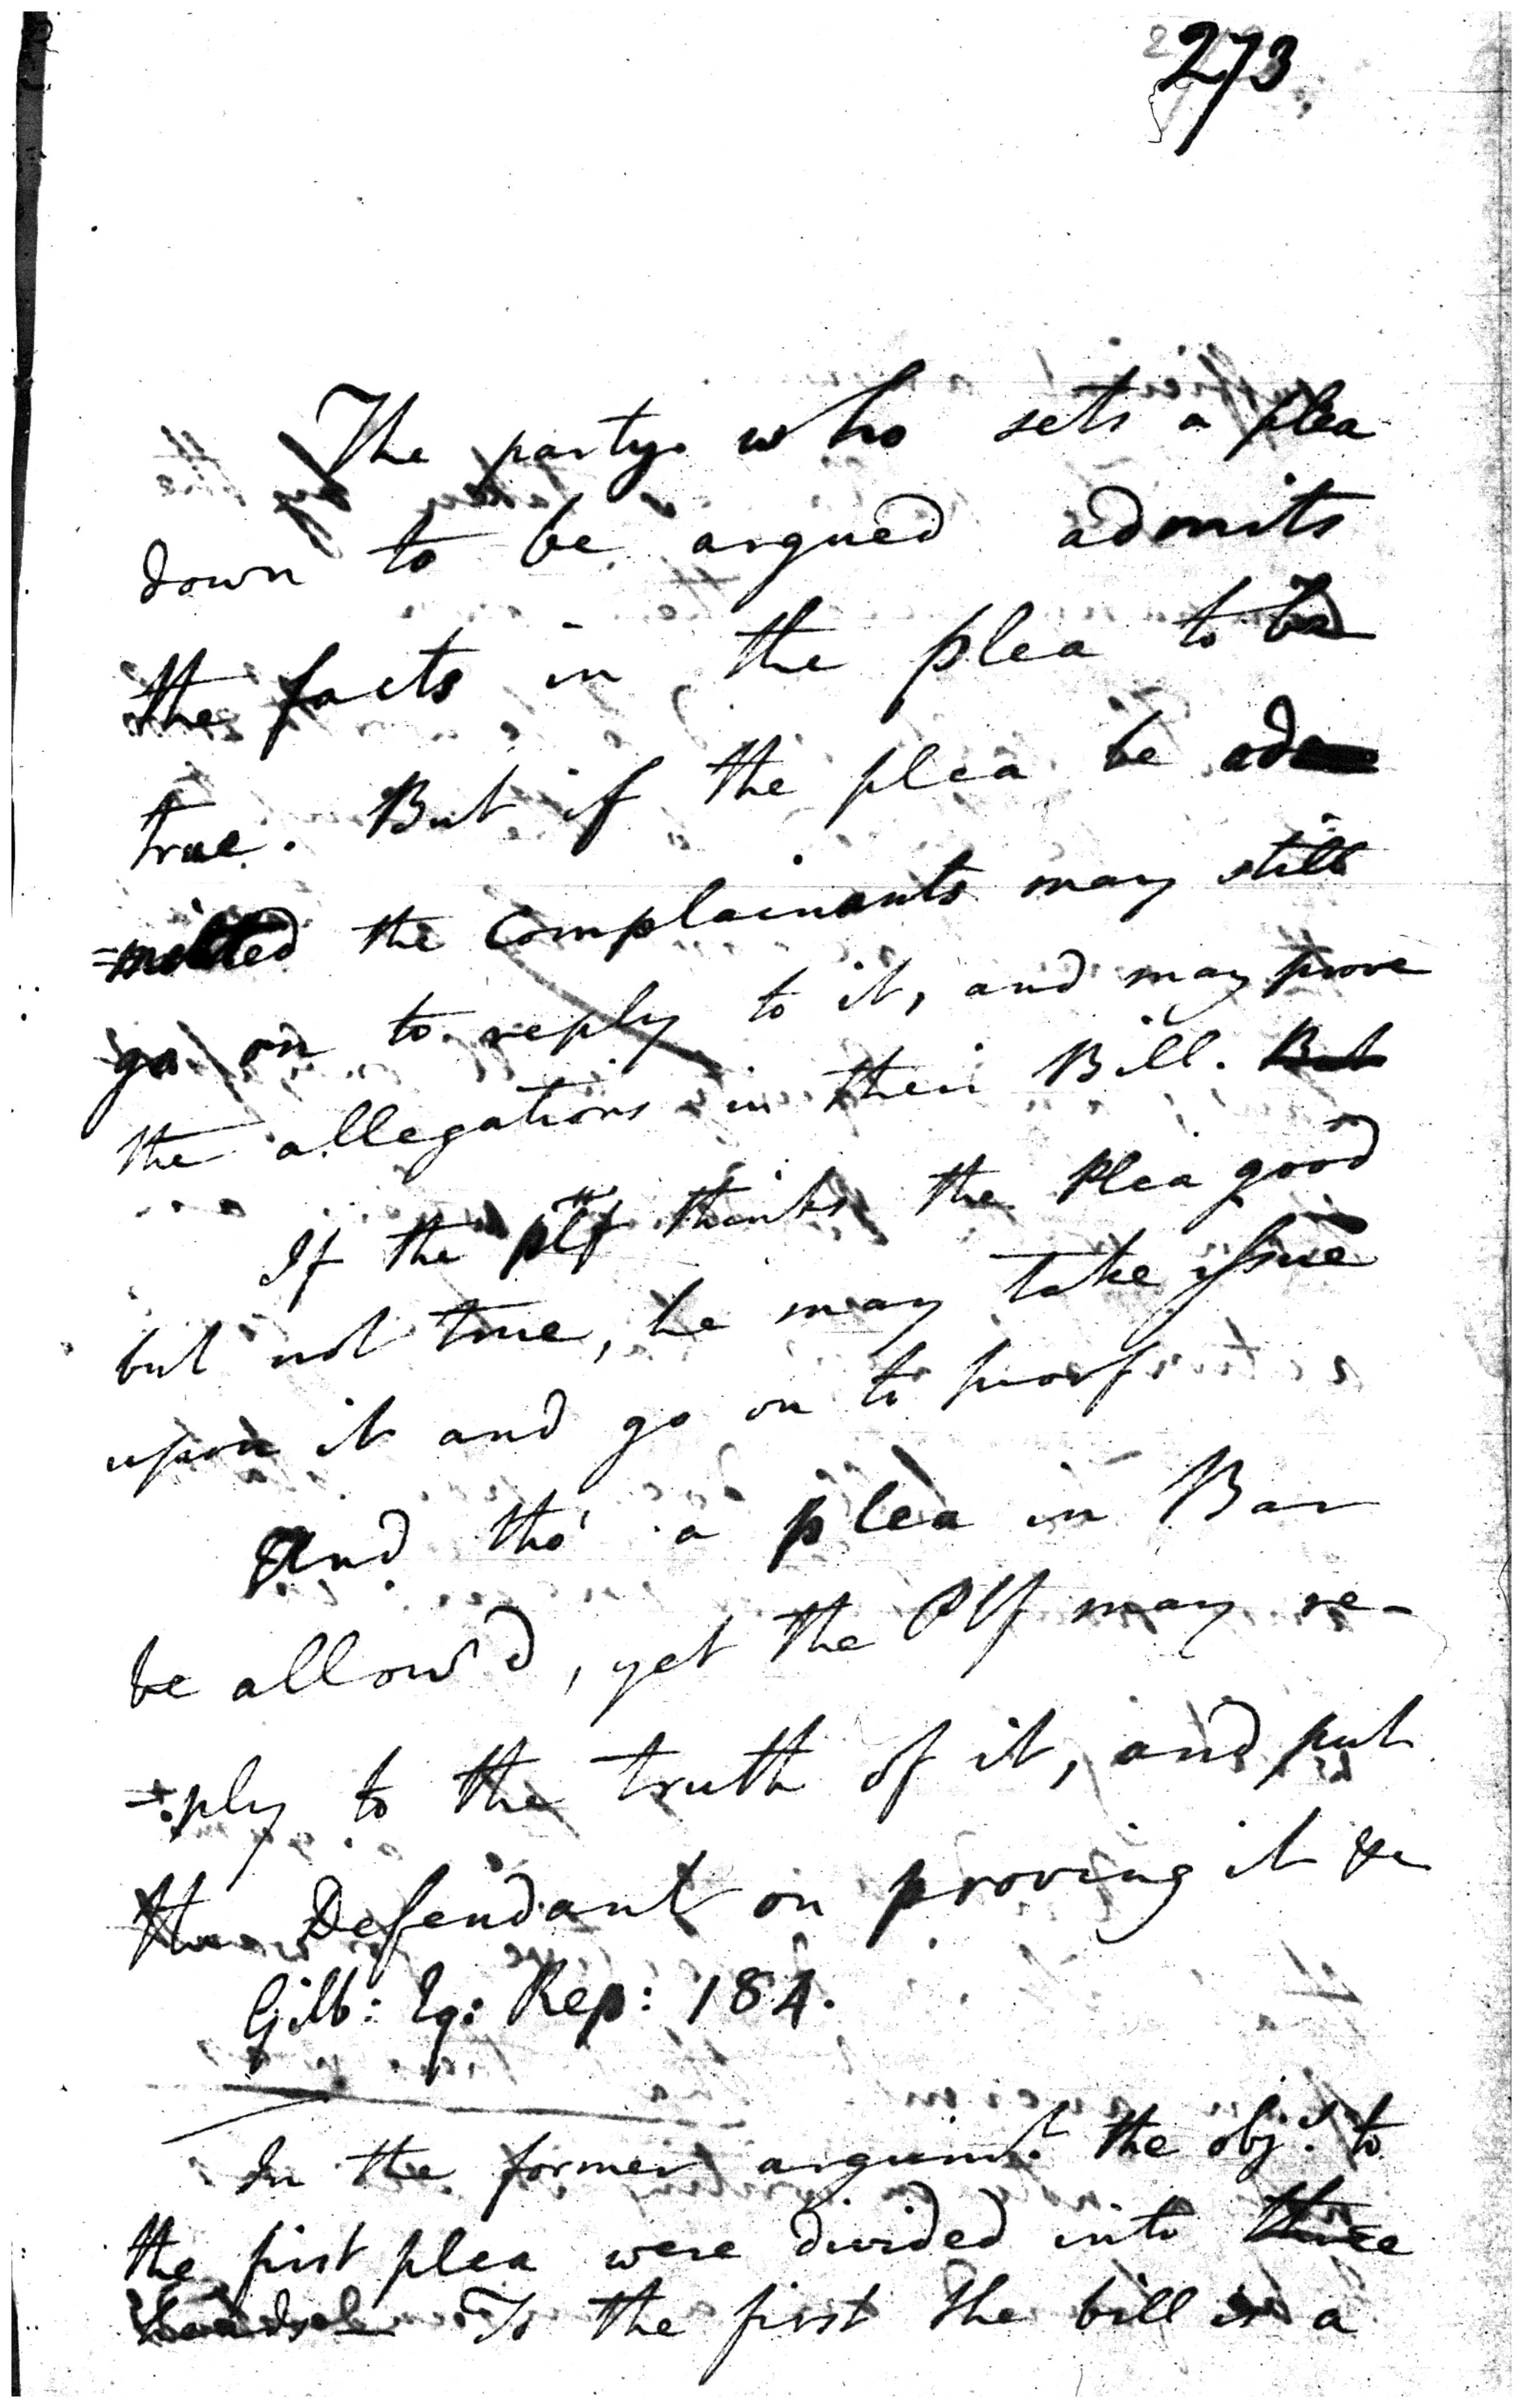 273
The party who sets a plea
down to be argued admits
the facts in the plea to be
true. But if the plea be ad
=mitted the Complainants may still
go on to reply to it, and may prove
the allegations in their Bill. But
If the plff thinks the Plea good
but not true, he may take issue
upon it and go on to proof
And tho' a plea in Bar
be allow'd, yet the Plf may re-
=ply to the truth of it, and put
the Defendant on proving it &c
Gilb: Eq: Rep: 184.
In the former argumt. the obj.s to
the first plea were divided into three
heads. Is the first the bill is a